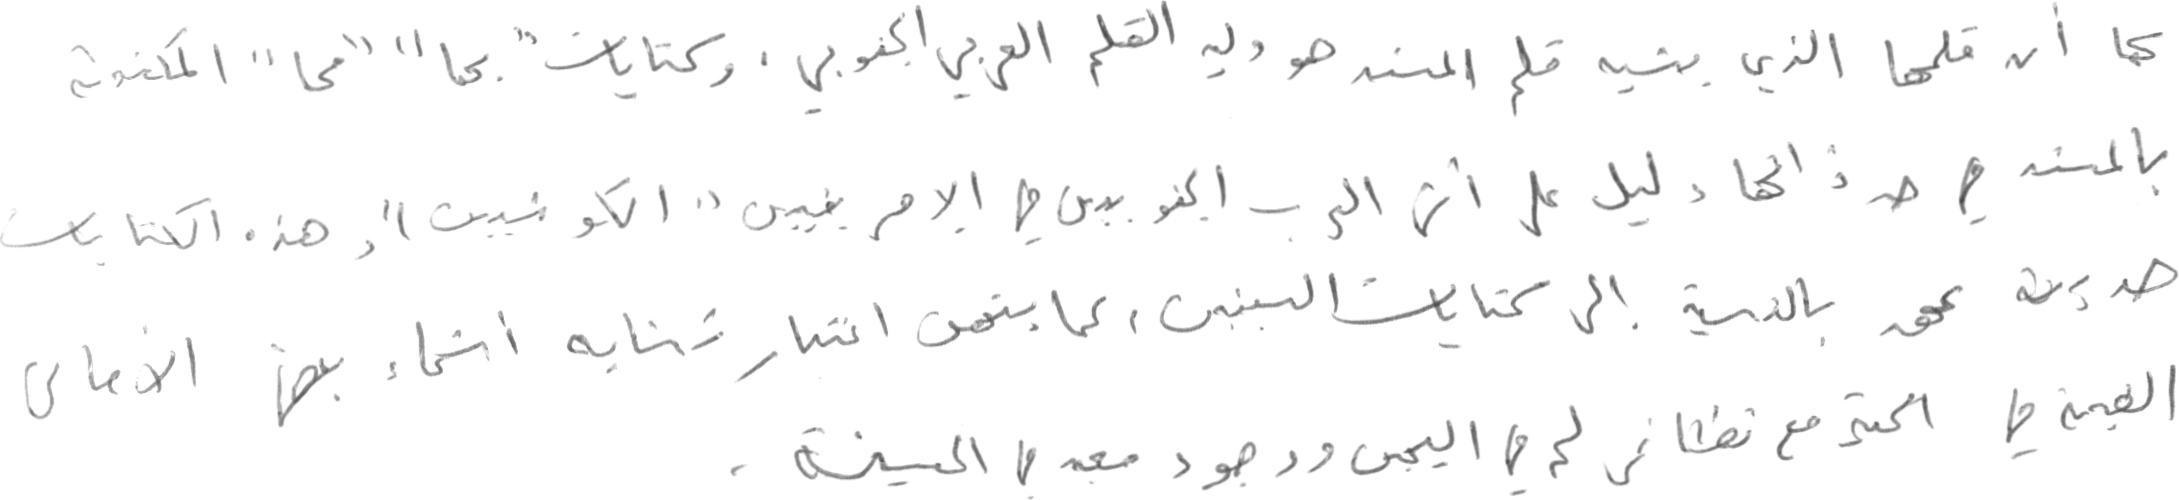 كما أن قلمها الذي يشبه قلم المسند هو وليد القلم العربي الجنوبي، وكتابات "بحا" "محا" المكتوبة
بالمسند في حد ذاتها دليل على أثر العرب الجنوبيين في الإفريقيين "الكوشيين"، وهذه الكتابات
حديثة بالنسبة إلى كتابات السبئيين، كما اعتبار تشابه أسماء بعض الأماكن
القديمة في الحبشة مع نظائر لها في اليمن ووجود معبد في الحبشة.